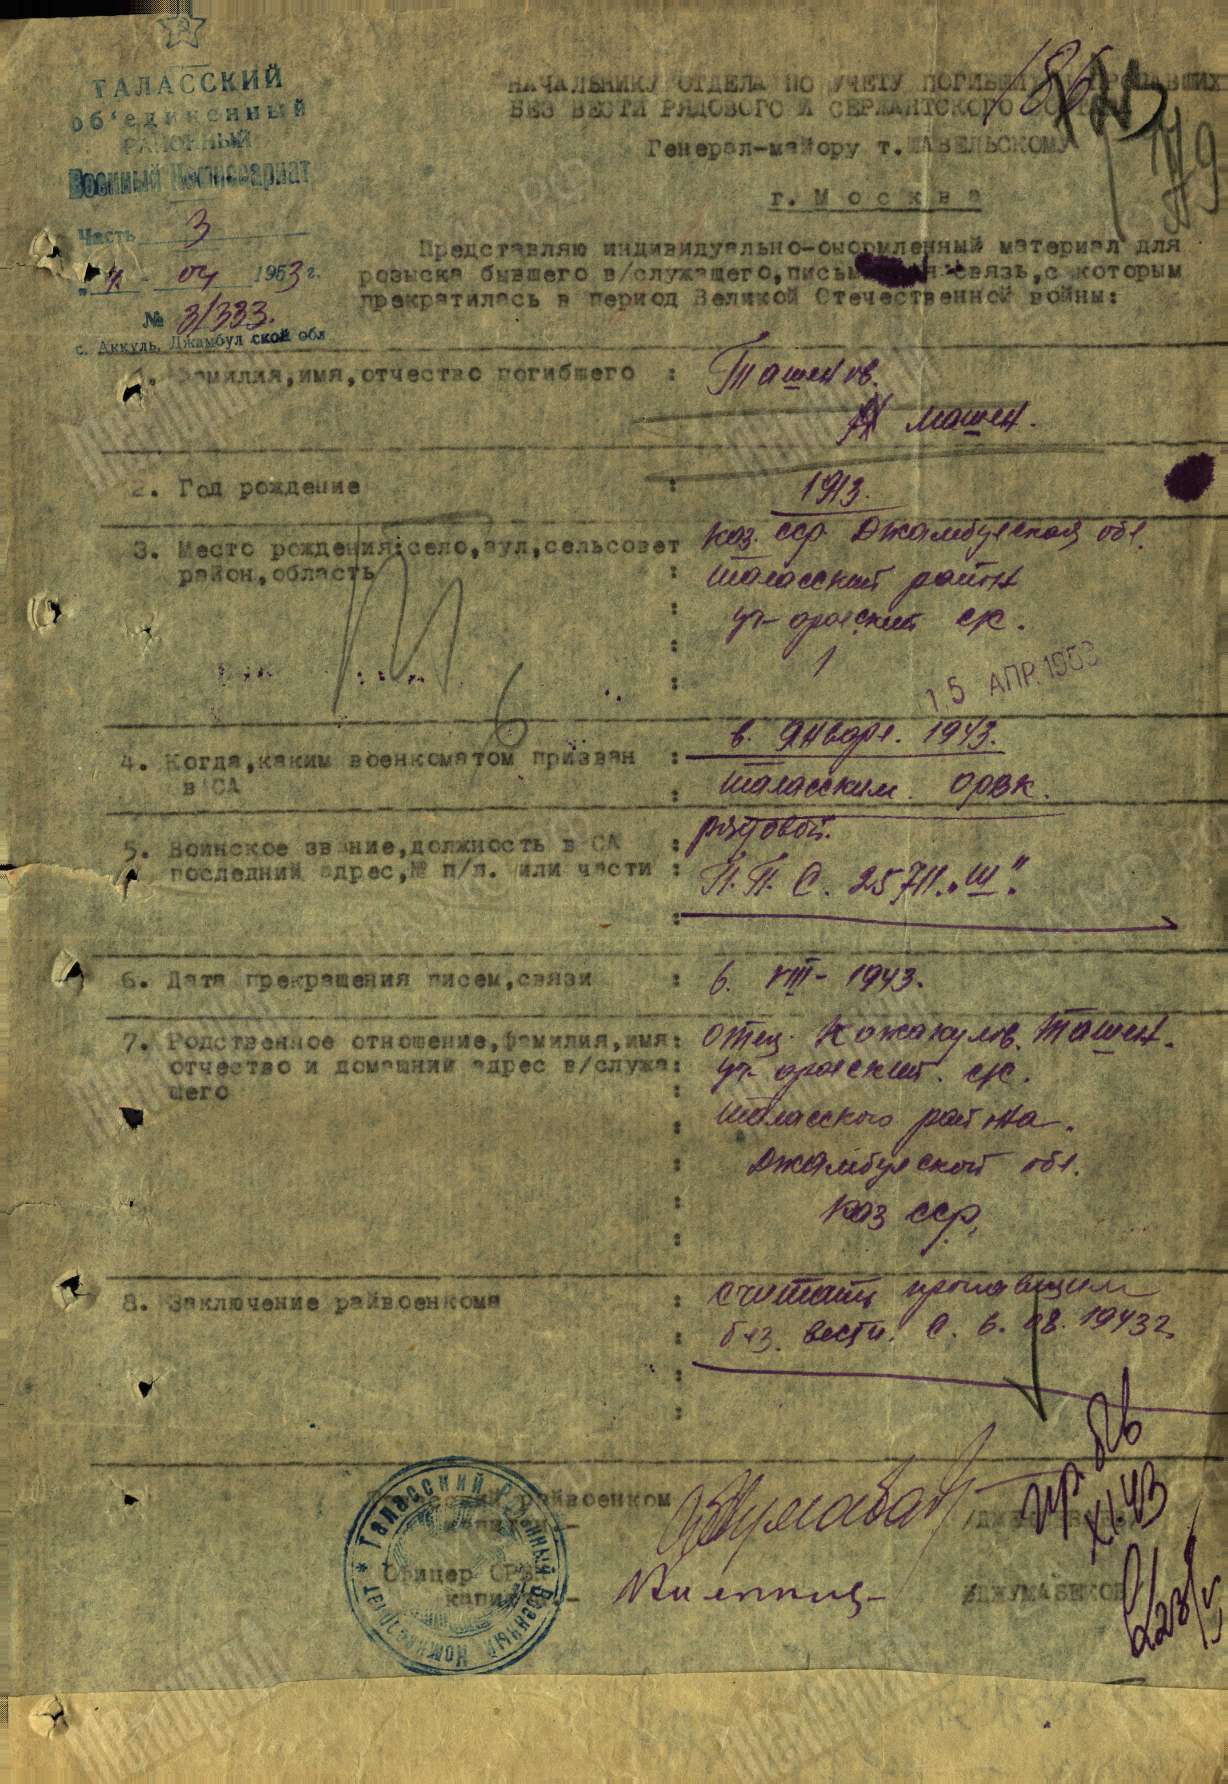 ТАЛАССКИЙ
об'единенный
РАЙОННЫЙ
Военный Комиссариат
Часть 3
04 1953 г.
№ 3/333.
с. Аккуль, Джамбулской обл
НАЧАЛЬНИКУ ОТДЕЛА ПО УЧЕТУ ПОГИБШИХ И ПРОПАВШИХ
БЕЗ ВЕСТИ РЯДОВОГО И СЕРЖАНТСКОГО
Генерал-майору т.ШАВЕЛЬСКОМУ
г. Москва
Представляю индивидуально-оформленный материал для
розыска бывшего в/служащего, связь, с которым
прекратилась в период Великой Отечественной войны:
1. Фамилия,имя,отчество погибшего : Ташенов.
Машен.
2. Год рождение : 1913.
3. Место рождения:село,аул,сельсовет Каз. сср Джамбулская обл.
район,область : Таласский район
уч-аралский с/с.
15 АПР. 1953
в. Январе. 1943.
4. Когда,каким военкоматом призван :
в СА : Таласским. ОРВК.
рядовой.
5. Воинское звание,должность в СА :
последний адрес,№ п/я. или части : П.П.С. 25711. „Ш".
6. Дата прекращения писем,связи : 6. VIII- 1943.
7. Родственное отношение,фамилия,имя: отец. Кожакулов. Ташен.
отчество и домашний адрес в/служа: уч-аралский. с/с.
щего : Таласского района.
: Джамбулской обл.
Каз сср.
8. Заключение райвоенкома : считать пропавшим
: без. вести. с. 6. 08. 1943 г.
пр. бв
XI.43
райвоенком
Офицер
капитан – /ДЖУМАБЕКОВ
Таласский Районный Военный Комиссариат